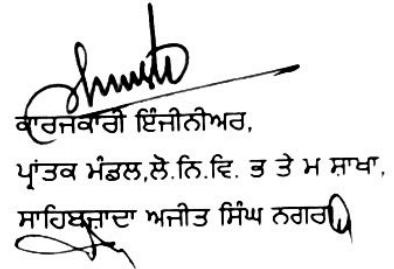 ਕਾਰਜਕਾਰੀ ਇੰਜੀਨੀਅਰ,
ਪ੍ਰਾਂਤਕ ਮੰਡਲ,ਲੋ.ਨਿ.ਵਿ. ਭ ਤੇ ਮ ਸ਼ਾਖਾ,
ਸਾਹਿਬਜ਼ਾਦਾ ਅਜੀਤ ਸਿੰਘ ਨਗਰ